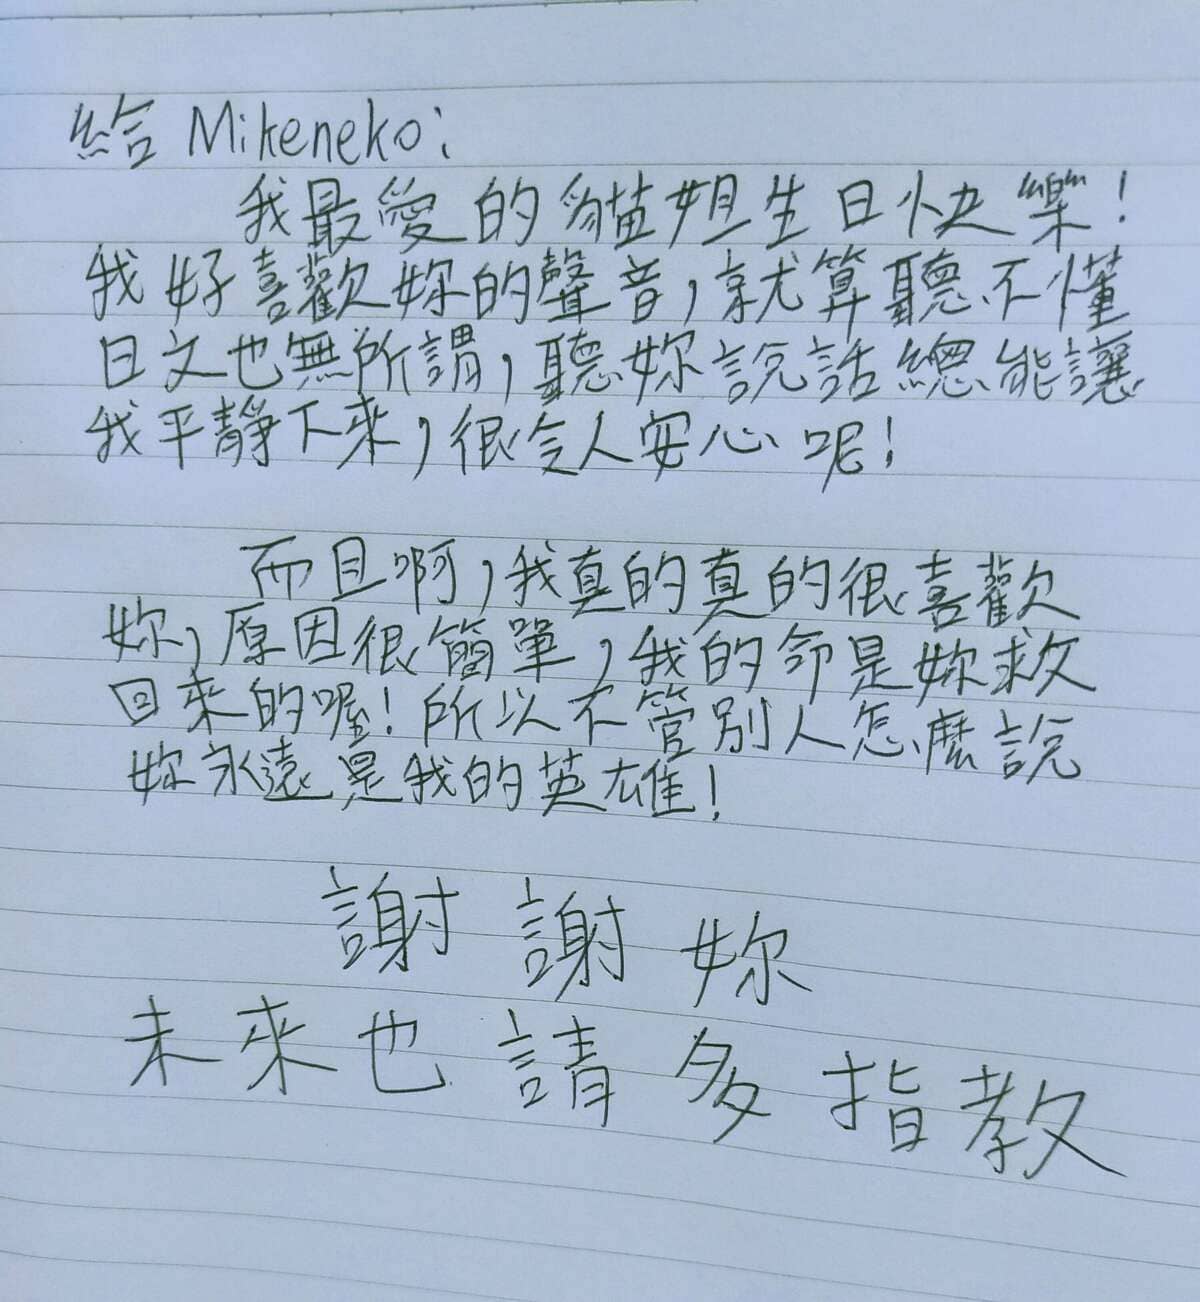 給 Mikeneko:
我最愛的貓姐生日快樂!
我好喜歡妳的聲音,就算聽不懂
日文也無所謂,聽妳說話總能讓
我平靜下來,很令人安心呢!
而且啊,我真的真的很喜歡
妳,原因很簡單,我的命是妳救
回來的喔!所以不管別人怎麼說
妳永遠是我的英雄!
謝謝妳
未來也請多指教